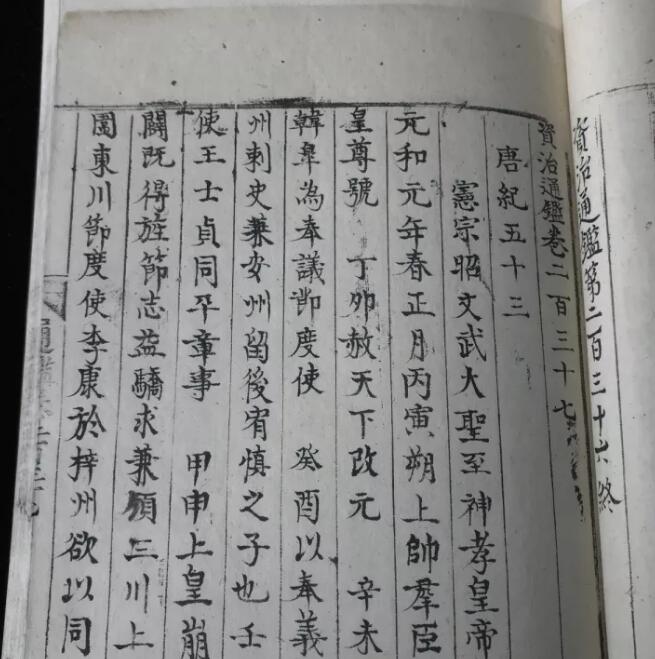 資治通鑑第二百三十六終
資治通鑑卷二百三十七
唐紀五十三
憲宗昭文武大聖至神孝皇帝
元和元年春正月丙寅朔上帥羣臣
皇尊號 丁卯赦天下改元 辛未
韓臯為奉議節度使 癸酉以奉義
州刺史兼安州留後宥慎之子也壬
使王士貞同平章事 甲申上皇崩
闢既得旌節志益驕求兼領三川上
圍東川節度使李康於梓州欲以同
通鑑